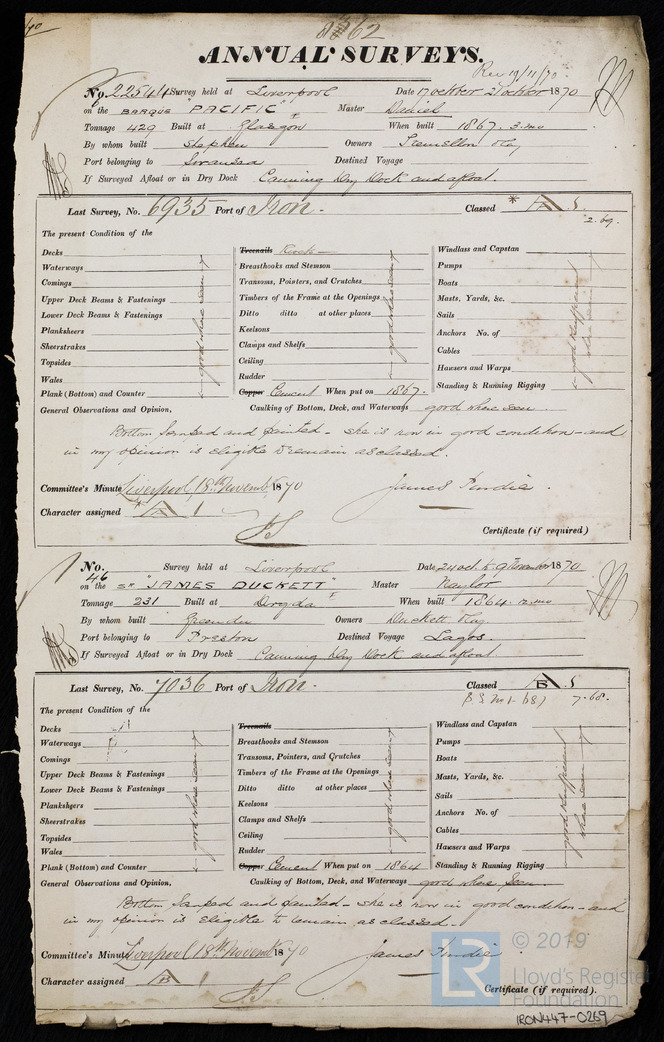 8362
ANNUAL SURVEYS.
Rec 19/11/70
No. 22544 Survey held at Liverpool Date 17 October 21 October 1870
on the BARQUE "PACIFIC" Master Daniel
Tonnage 429 Built at Glasgow When built 1867. 3.mo
By whom built Stephen Owners
Port belonging to Swansea Destined Voyage
If Surveyed Afloat or in Dry Dock Canning Dry Dock and afloat.
Last Survey, No. 6935 Port of Iron. Classed * A 1
2.69.
The present Condition of the
Decks
Waterways
Comings
Upper Deck Beams & Fastenings
Lower Deck Beams & Fastenings
Planksheers
Sheerstrakes
Topsides
Wales
Plank (Bottom) and Counter
good where seen
Treenails
Breasthooks and Stemson
Transoms, Pointers, and Crutches
Timbers of the Frame at the Openings
Ditto ditto at other places
Keelsons
Clamps and Shelfs
Ceiling
Rudder
Copper Cement When put on 1867.
good where seen
Windlass and Capstan
Pumps
Boats
Masts, Yards, &c.
Sails
Anchors No. of
Cables
Hawsers and Warps
Standing & Running Rigging
good & sufficient
where seen
General Observations and Opinion, Caulking of Bottom, Deck, and Waterways good where seen
Bottom scraped and painted - she is now in good condition - and
in my opinion is eligible to remain as classed.
Committee's Minute Liverpool, 18th November 1870 James Pindie
Character assigned * A 1
Certificate (if required)
No. 46 Survey held at Liverpool Date 24 Oct. to 9 November 1870
on the SR "JAMES DUCKETT" Master Naylor
Tonnage 231 Built at Drogda When built 1864. 12.mo
By whom built Owners Duckett
Port belonging to Preston Destined Voyage Lagos.
If Surveyed Afloat or in Dry Dock Canning Dry Dock and afloat
Last Survey, No. 7036 Port of Iron. Classed B 1
7.68.
The present Condition of the
Decks
Waterways
Comings
Upper Deck Beams & Fastenings
Lower Deck Beams & Fastenings
Planksheers
Sheerstrakes
Topsides
Wales
Plank (Bottom) and Counter
good where seen
Treenails
Breasthooks and Stemson
Transoms, Pointers, and Crutches
Timbers of the Frame at the Openings
Ditto ditto at other places
Keelsons
Clamps and Shelfs
Ceiling
Rudder
Copper Cement When put on 1864
good where seen
Windlass and Capstan
Pumps
Boats
Masts, Yards, &c.
Sails
Anchors No. of
Cables
Hawsers and Warps
Standing & Running Rigging
good & sufficient
where seen
General Observations and Opinion, Caulking of Bottom, Deck, and Waterways good where seen
Bottom scraped and painted - she is now in good condition - and
in my opinion is eligible to remain as classed.
Committee's Minute Liverpool 18th November 1870 James Pindie
Character assigned B 1
Certificate (if required).
LR © 2019
Lloyd's Register
Foundation
IRON447-0269